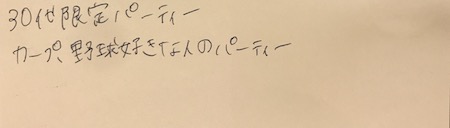 30代限定パーティー
カープ、野球好きな人のパーティー